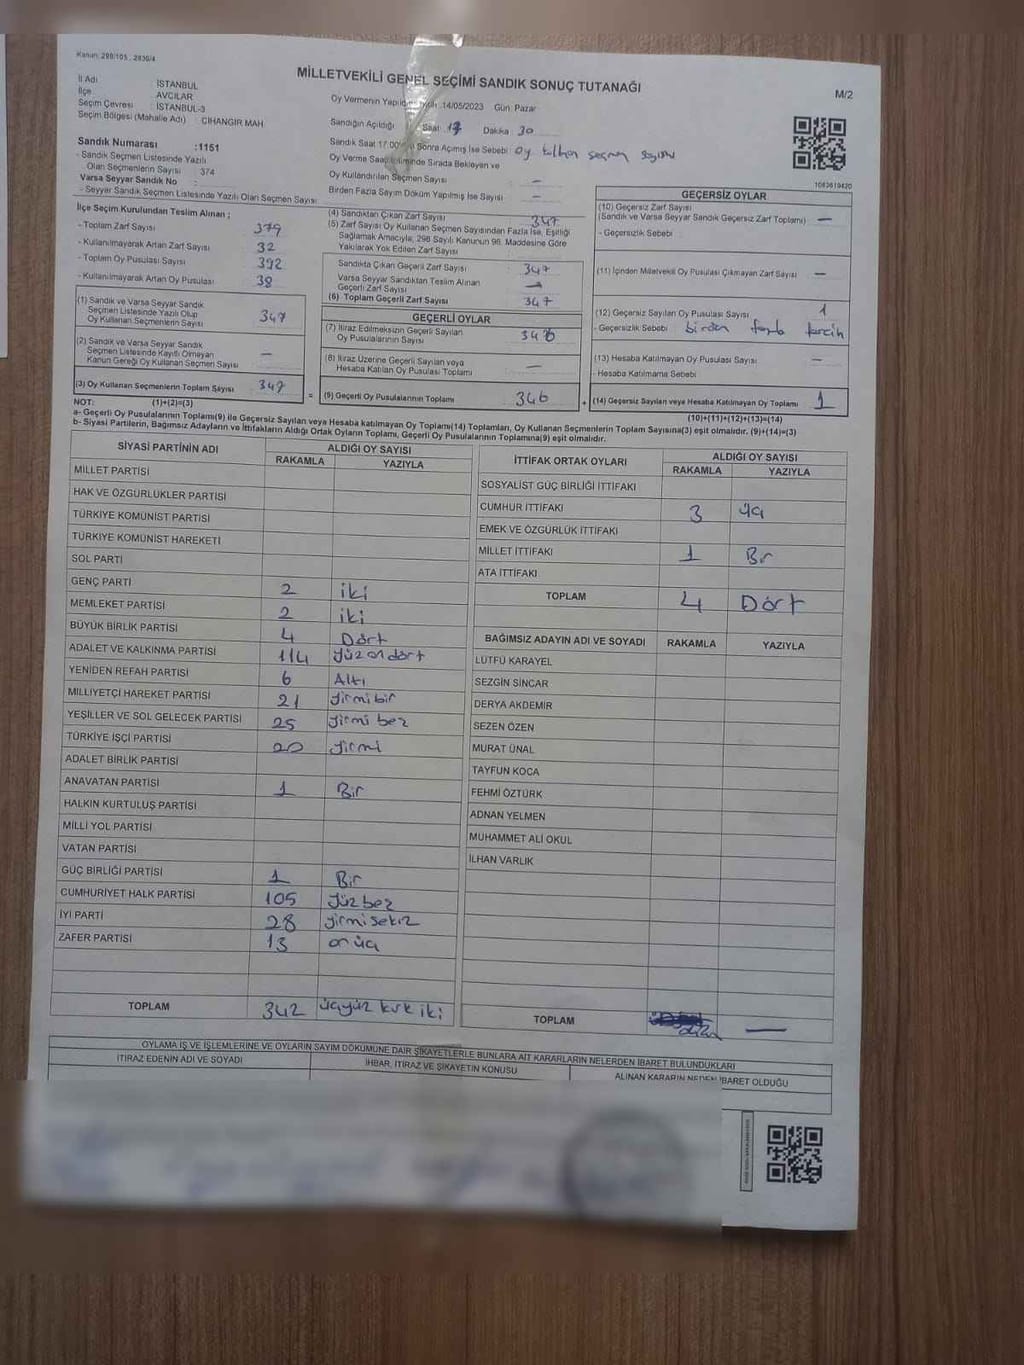 Kanun: 298/105, 2839/4
MİLLETVEKİLİ GENEL SEÇİMİ SANDIK SONUÇ TUTANAĞI
M/2
İl Adı : İSTANBUL
İlçe : AVCILAR
Seçim Çevresi : İSTANBUL-3
Seçim Bölgesi (Mahalle Adı) : CİHANGİR MAH
Oy Vermenin 14/05/2023 Gün: Pazar
Sandığın Açıldığı Saat: 17 Dakika 30
Sandık Saat 17.00 Sonra Açımış İse Sebebi: Oy seçmen sayısı
Oy Verme Sırada Bekleyen ve
Oy Kullandırılan Seçmen Sayısı —
Birden Fazla Sayım Döküm Yapılmış İse Sayısı —
Sandık Numarası :1151
- Sandık Seçmen Listesinde Yazılı
Olan Seçmenlerin Sayısı : 374
Varsa Seyyar Sandık No :
- Seyyar Sandık Seçmen Listesinde Yazılı Olan Seçmen Sayısı:
1083619420
İlçe Seçim Kurulundan Teslim Alınan ;
- Toplam Zarf Sayısı 379
- Kullanılmayarak Artan Zarf Sayısı 32
- Toplam Oy Pusulası Sayısı 392
- Kullanılmayarak Artan Oy Pusulası 38
(1) Sandık ve Varsa Seyyar Sandık
Seçmen Listesinde Yazılı Olup
Oy Kullanan Seçmenlerin Sayısı 347
(2) Sandık ve Varsa Seyyar Sandık
Seçmen Listesinde Kayıtlı Olmayan
Kanun Gereği Oy Kullanan Seçmen Sayısı —
(3) Oy Kullanan Seçmenlerin Toplam Sayısı 347
(4) Sandıktan Çıkan Zarf Sayısı 347
(5) Zarf Sayısı Oy Kullanan Seçmen Sayısından Fazla İse, Eşitliği
Sağlamak Amacıyla, 298 Sayılı Kanunun 98. Maddesine Göre
Yakılarak Yok Edilen Zarf Sayısı
Sandıkta Çıkan Geçerli Zarf Sayısı 347
Varsa Seyyar Sandıktan Teslim Alınan
Geçerli Zarf Sayısı —
(6) Toplam Geçerli Zarf Sayısı 347
GEÇERLİ OYLAR
(7) İtiraz Edilmeksizin Geçerli Sayılan
Oy Pusulalarının Sayısı 346
(8) İtiraz Üzerine Geçerli Sayılan veya
Hesaba Katılan Oy Pusulası Toplamı —
(9) Geçerli Oy Pusulalarının Toplamı 346
GEÇERSİZ OYLAR
(10) Geçersiz Zarf Sayısı
(Sandık ve Varsa Seyyar Sandık Geçersiz Zarf Toplamı) —
- Geçersizlik Sebebi
(11) İçinden Milletvekili Oy Pusulası Çıkmayan Zarf Sayısı —
(12) Geçersiz Sayılan Oy Pusulası Sayısı 1
- Geçersizlik Sebebi birden fazla tercih
(13) Hesaba Katılmayan Oy Pusulası Sayısı —
- Hesaba Katılmama Sebebi
(14) Geçersiz Sayılan veya Hesaba Katılmayan Oy Toplamı 1
NOT: (1)+(2)=(3)
(10)+(11)+(12)+(13)=(14)
a- Geçerli Oy Pusulalarının Toplamı(9) ile Geçersiz Sayılan veya Hesaba Katılmayan Oy Toplamı(14) Toplamları, Oy Kullanan Seçmenlerin Toplam Sayısına(3) eşit olmalıdır. (9)+(14)=(3)
b- Siyasi Partilerin, Bağımsız Adayların ve İttifakların Aldığı Ortak Oyların Toplamı, Geçerli Oy Pusulalarının Toplamına(9) eşit olmalıdır.
SİYASİ PARTİNİN ADI ALDIĞI OY SAYISI
RAKAMLA YAZIYLA
MİLLET PARTİSİ
HAK VE ÖZGÜRLÜKLER PARTİSİ
TÜRKİYE KOMÜNİST PARTİSİ
TÜRKİYE KOMÜNİST HAREKETİ
SOL PARTİ
GENÇ PARTİ 2 iki
MEMLEKET PARTİSİ 2 iki
BÜYÜK BİRLİK PARTİSİ 4 Dört
ADALET VE KALKINMA PARTİSİ 114 Yüzondört
YENİDEN REFAH PARTİSİ 6 Altı
MİLLİYETÇİ HAREKET PARTİSİ 21 yirmibir
YEŞİLLER VE SOL GELECEK PARTİSİ 25 yirmi beş
TÜRKİYE İŞÇİ PARTİSİ 20 yirmi
ADALET BİRLİK PARTİSİ
ANAVATAN PARTİSİ 1 Bir
HALKIN KURTULUŞ PARTİSİ
MİLLİ YOL PARTİSİ
VATAN PARTİSİ
GÜÇ BİRLİĞİ PARTİSİ 1 Bir
CUMHURİYET HALK PARTİSİ 105 yüzbeş
İYİ PARTİ 28 yirmisekiz
ZAFER PARTİSİ 13 onüç
TOPLAM 342 üçyüz kırk iki
İTTİFAK ORTAK OYLARI ALDIĞI OY SAYISI
RAKAMLA YAZIYLA
SOSYALİST GÜÇ BİRLİĞİ İTTİFAKI
CUMHUR İTTİFAKI 3 üç
EMEK VE ÖZGÜRLÜK İTTİFAKI
MİLLET İTTİFAKI 1 Bir
ATA İTTİFAKI
TOPLAM 4 Dört
BAĞIMSIZ ADAYIN ADI VE SOYADI RAKAMLA YAZIYLA
LÜTFÜ KARAYEL
SEZGİN SİNCAR
DERYA AKDEMİR
SEZEN ÖZEN
MURAT ÜNAL
TAYFUN KOCA
FEHMİ ÖZTÜRK
ADNAN YELMEN
MUHAMMET ALİ OKUL
İLHAN VARLIK
TOPLAM —
OYLAMA İŞ VE İŞLEMLERİNE VE OYLARIN SAYIM DÖKÜMÜNE DAİR ŞİKAYETLERLE BUNLARA AİT KARARLARIN NELERDEN İBARET BULUNDUKLARI
İTİRAZ EDENİN ADI VE SOYADI İHBAR, İTİRAZ VE ŞİKAYETİN KONUSU ALINAN KARARIN NEDEN İBARET OLDUĞU